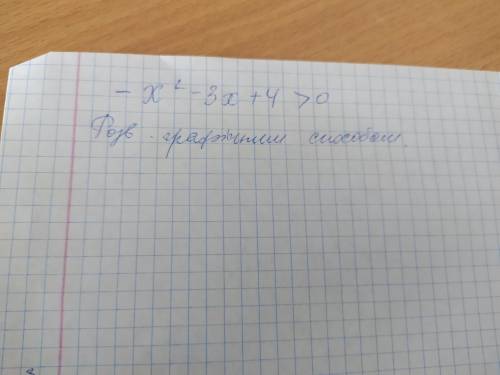 - x² - 3x + 4 > 0
Розв. графічним способом